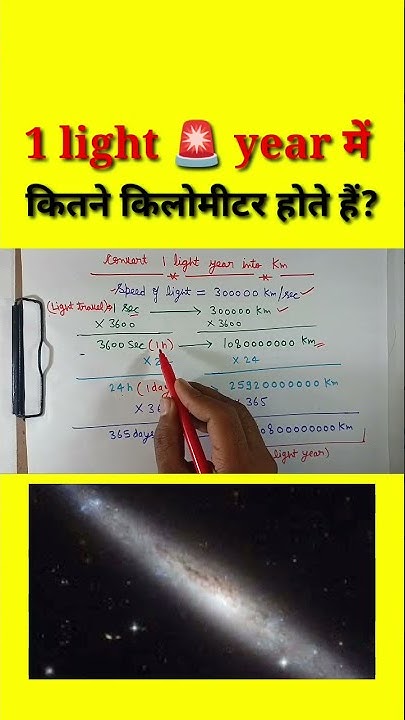 1 light 🚨 year में
कितने किलोमीटर होते हैं?
Convert 1 light year into Km
Speed of light = 300000 km/sec
(Light travel) 1 sec → 300000 Km
× 3600 × 3600
3600 sec (1h) → 1080000000 Km
× 24
24h (1day → 25920000000 Km
×365
365 days Km
light year)